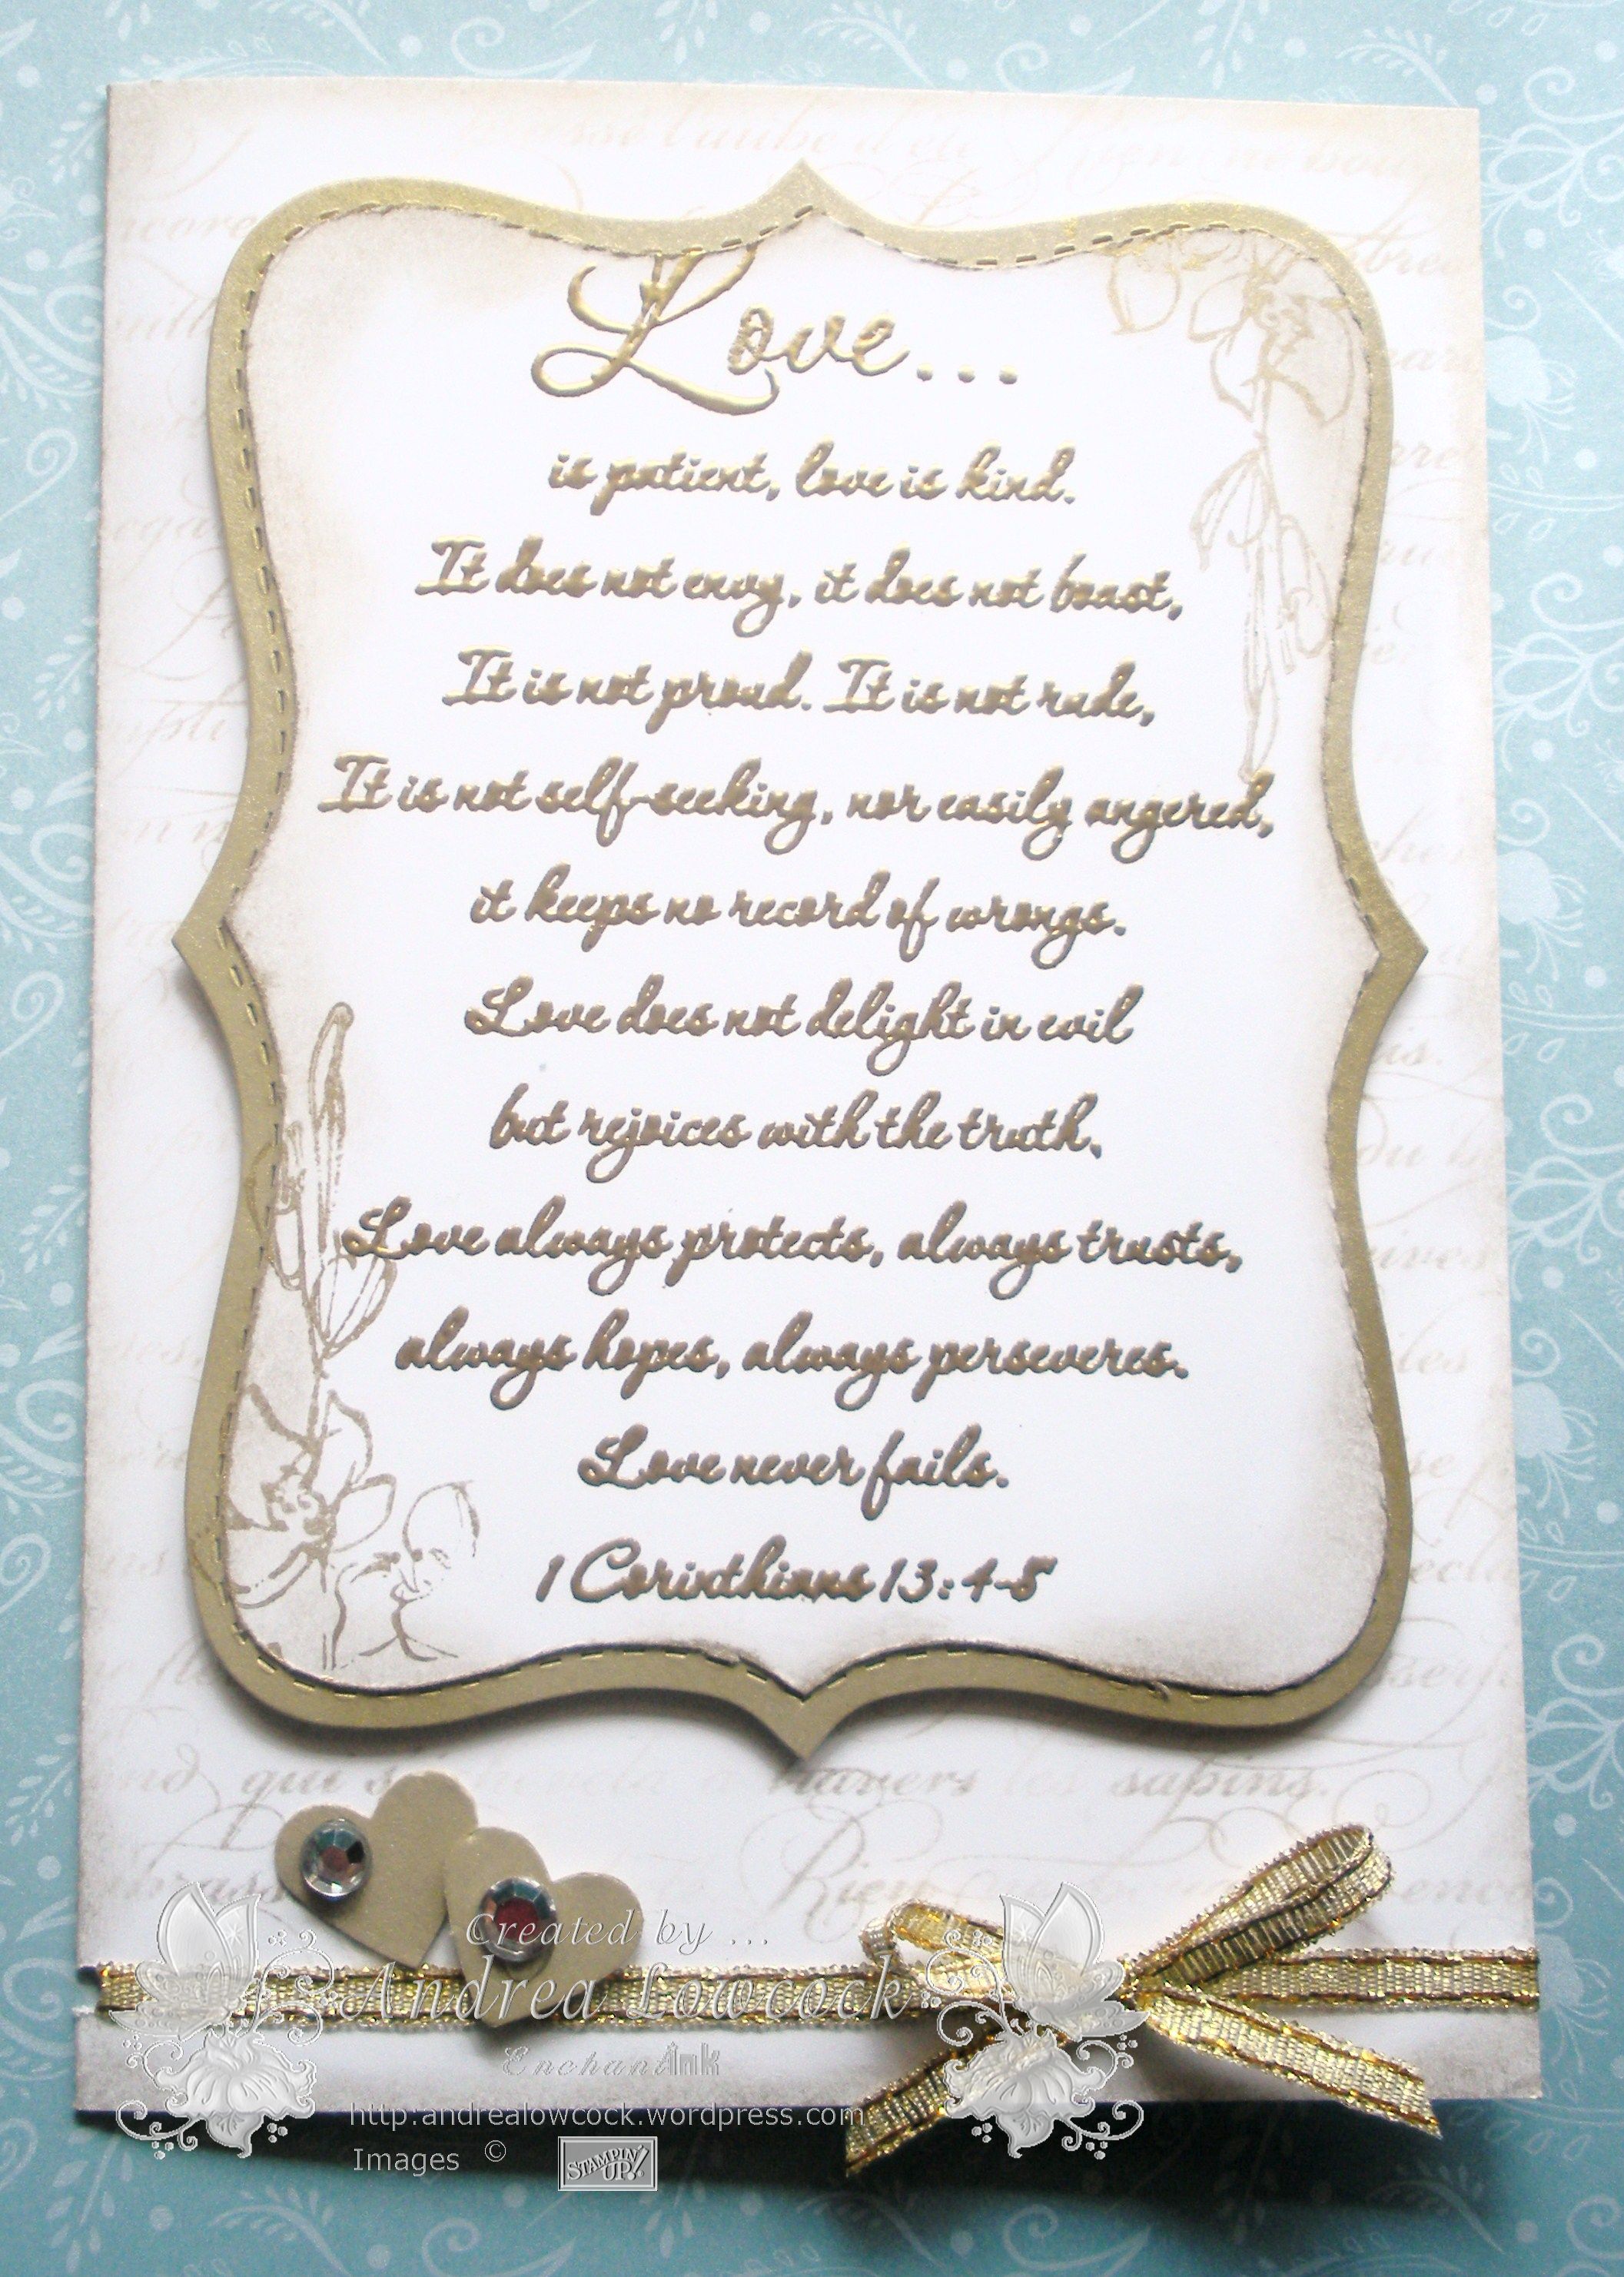 Love...
is patient, love is kind.
It does not envy, it does not boast,
It is not proud. It is not rude,
It is not self-seeking, nor easily angered,
it keeps no record of wrongs.
Love does not delight in evil
but rejoices with the truth.
Love always protects, always trusts,
always hopes, always perseveres.
Love never fails.
1 Corinthians 13:4-8
qui s travers les sapins.
Rien
Created by ...
Andrea Lowcock
EnchantInk
http:andrealowcock.wordpress.com
Images ©
STAMPIN' UP!